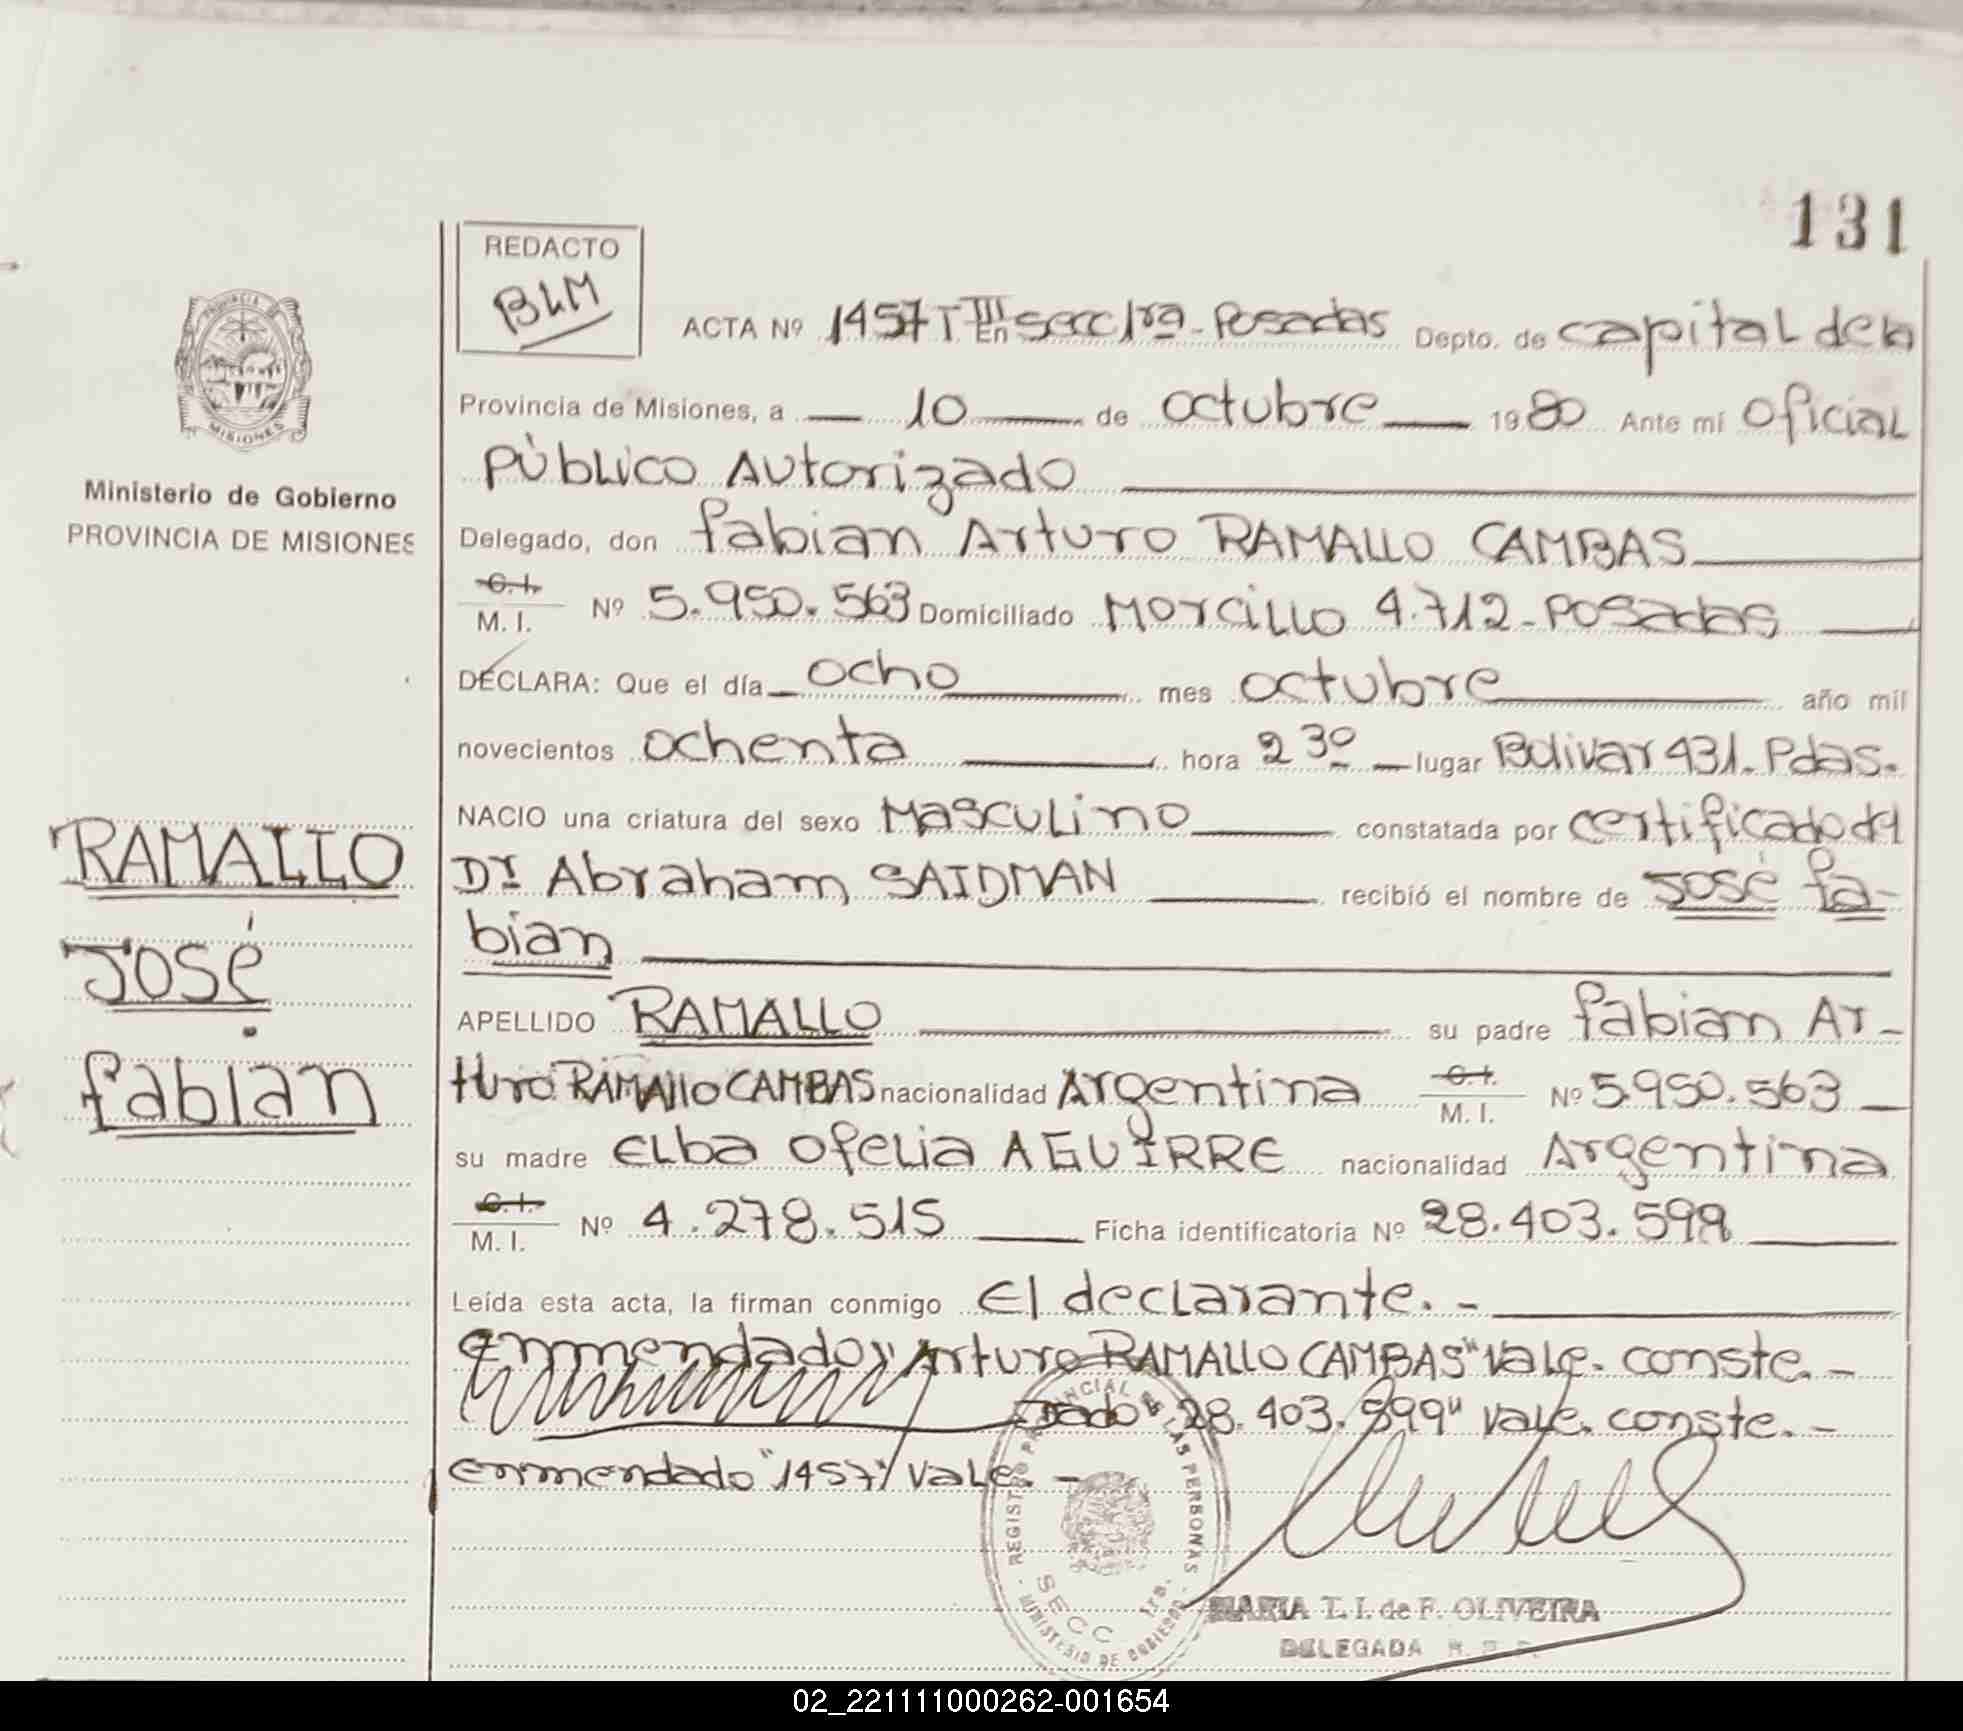 131
REDACTO
BLM
ACTA Nº 1457 T III En secc 1ra - Posadas Depto. de capital de la
Provincia de Misiones, a 10 de octubre 1980 Ante mí Oficial
Público Autorizado
Delegado, don Fabian Arturo RAMALLO CAMBAS
C.I.
M.I. Nº 5.950.563 Domiciliado Morcillo 4.712 - Posadas
DECLARA: Que el día ocho mes octubre año mil
novecientos ochenta hora 2 30 lugar Bolivar 431. Pdas.
NACIO una criatura del sexo Masculino constatada por certificado del
Dr Abraham SAIDMAN recibió el nombre de José Fa-
bian
APELLIDO RAMALLO su padre Fabian Ar-
turo RAMALLO CAMBAS nacionalidad Argentina C.I. M.I. Nº 5.950.563
su madre Elba Ofelia AGUIRRE nacionalidad Argentina
C.I.
M.I. Nº 4.278.515 Ficha identificatoria Nº 28.403.599
Leída esta acta, la firman conmigo El declarante. -
Enmendado "Arturo RAMALLO CAMBAS" Vale. conste. -
"28.403.599" Vale. conste. -
enmendado "1457" Vale. -
Ministerio de Gobierno
PROVINCIA DE MISIONES
RAMALLO
José
Fabian
PROVINCIA DE MISIONES
REGISTRO PROVINCIAL DE LAS PERSONAS
MINISTERIO DE GOBIERNO
SECC 1ra.
MARIA T. I. de F. OLIVEIRA
DELEGADA
02_221111000262-001654